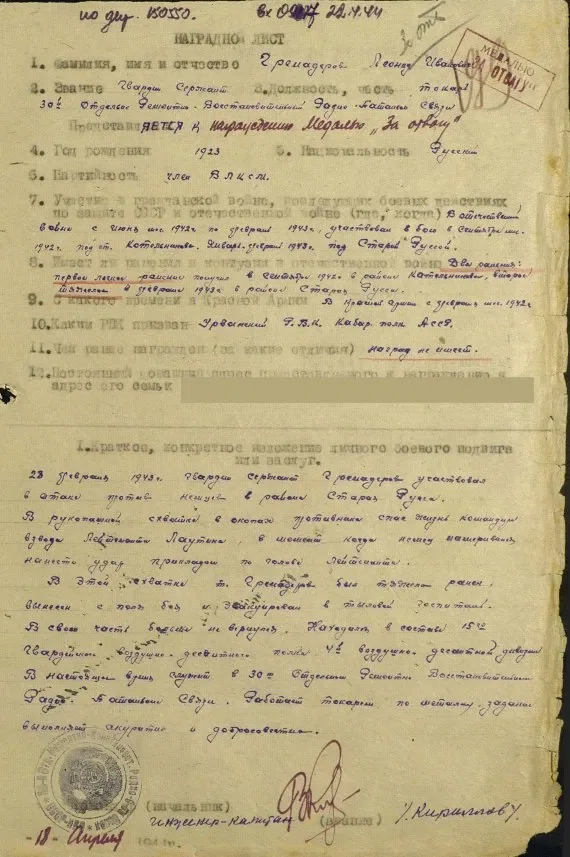 по дер. 150550. вх 0917 22.4.44
НАГРАДНОЙ ЛИСТ
МЕДАЛЬЮ
"ЗА ОТВАГУ"
1. Фамилия, имя и отчество Гренадеров Леонид Иванович
2. Звание Гвардии Сержант 3. Должность, часть токарь
30го Отдельного Ремонтно-Восстановительный Радио-Батальон Связи
Представляется к награждению Медалью „За отвагу"
4. Год рождения 1923 5. Национальность Русский
6. Партийность член ВЛКСМ.
7. Участие в гражданской войне, последующих боевых действиях
по защите СССР и отечественной войне (где, когда) В отечественной
войне с Июня м-ца 1942г по февраль 1943г, участвовал в боях в Сентябре м-це
1942г. под ст. Котельниково. Январе-феврале 1943г. под Старой Руссой.
8. Имеет ли ранения и контузии в отечественной войне Два ранения:
первое легкое ранение получил в Сентябре 1942г в районе Котельниково, второе
тяжелое в феврале 1943г в районе Старая Русса.
9. С какого времени в Красной Армии В Красной Армии с февраля м-ца 1942г
10. Каким РВК призван Урванский Р.В.К. Кабар. Балк АССР.
11. Чем ранее награжден (за какие отличия) наград не имеет.
12. Постоянный домашний адрес представляемого к награждению и
адрес его семьи
I. Краткое, конкретное изложение личного боевого подвига
или заслуг.
23 февраля 1943г. гвардии сержант Гренадеров участвовал
в атаке против немцев в районе Старая Русса.
В рукопашной схватке в окопах противника спас жизнь командиру
взвода Лейтенанту Лаутину, в момент когда немец намеривался
нанести удар прикладом по голове Лейтенанта.
В этой схватке т. Гренадеров был тяжело ранен,
вынесен с поля боя и эвакуирован в тыловой госпиталь.
В свою часть больше не вернулся. Находился в составе 15го
Гвардейского воздушно-десантного полка 4й воздушно-десантной дивизии
В настоящее время служит в 30ом Отдельном Ремонтно Восстановительном
Радио-Батальоне Связи. Работает токарем по металлу, задания
выполняет акуратно и добросовестно.
(начальник) (звание)
инженер-капитан /Кириллов/
-18- Апреля 1944г.